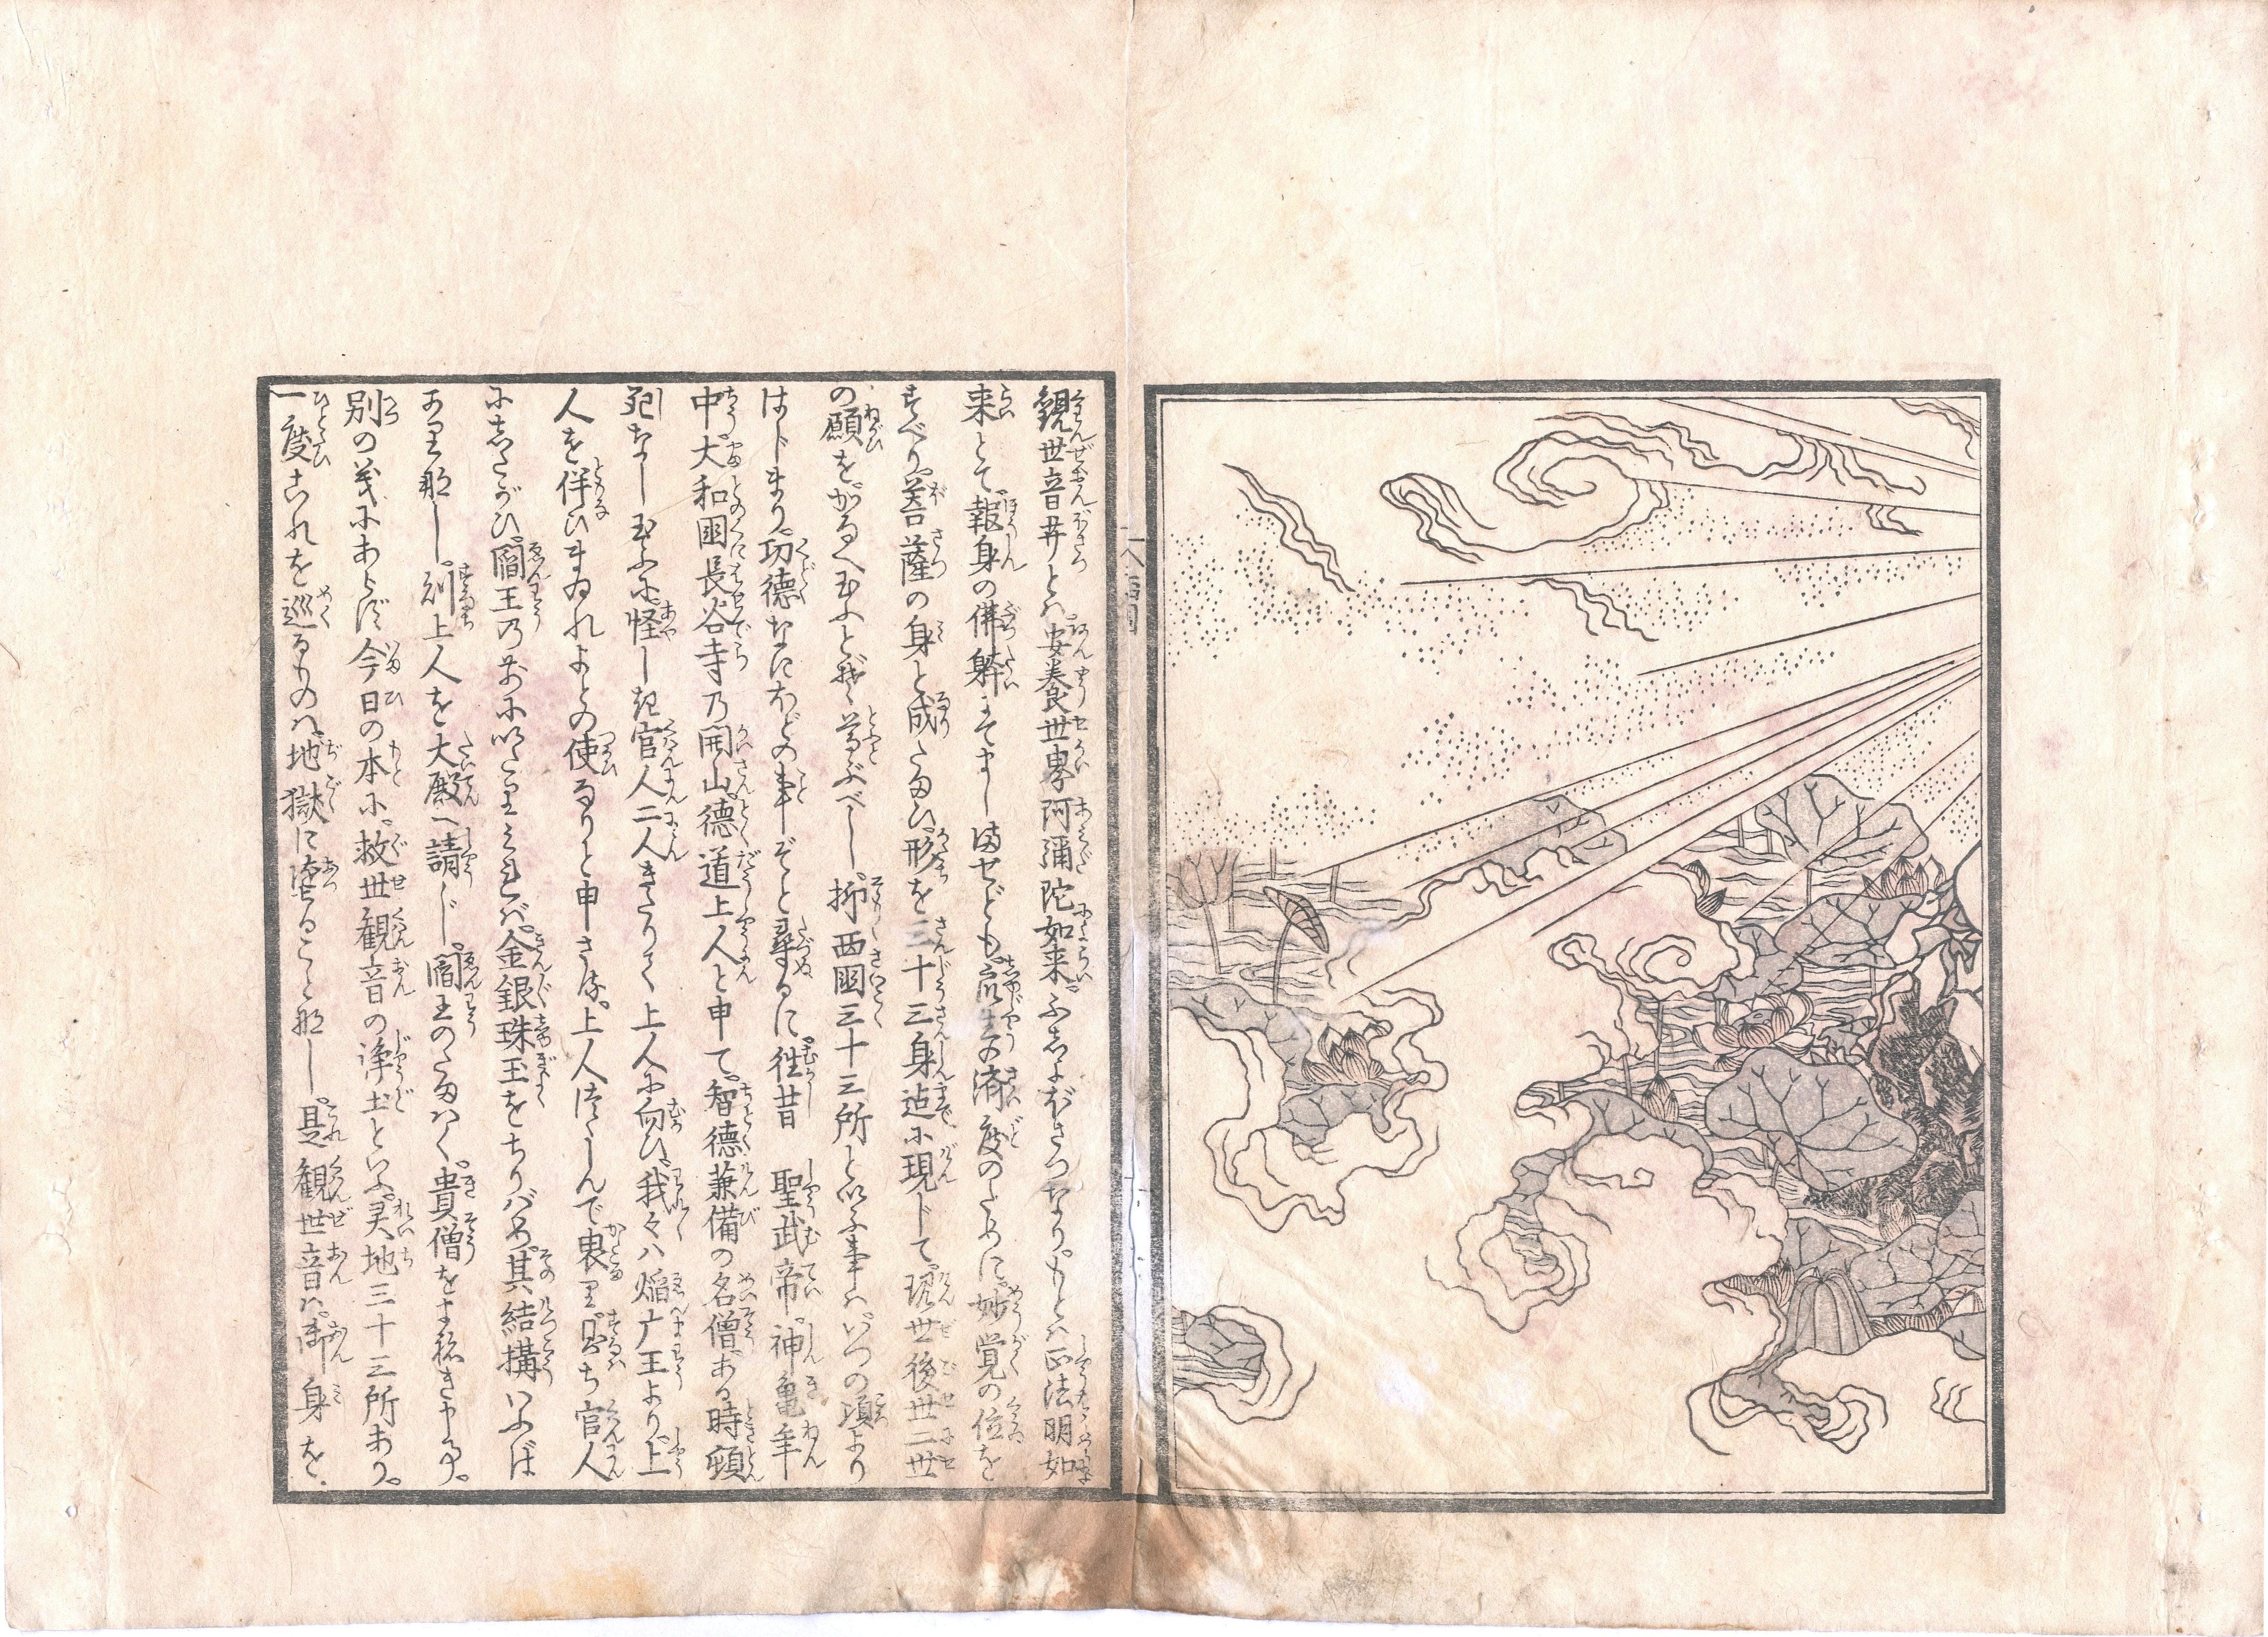 観世音菩とハ安養世界阿彌陀如来ふしよぼさつなりもとハ正法明如
来とて報身の佛躰にてましませども衆生済度のために妙覚の位を
すべり菩薩の身と成たまひ形を三十三身迠に現じて現世後世二世
の願をかなへ玉ふとぞ尊ぶべし抑西國三十三所といふ事ハいつの頃より
はじまり功徳なにほどの事ぞと尋るに往昔 聖武帝神亀年
中大和國長谷寺乃開山徳道上人と申て智徳兼備の名僧ある時頓
死なし玉ふに怪しき官人二人きたりて上人に向ひ我々ハ焔广王より上
人を伴ひまゐれよとの使なりと申さる上人つゝしんで畏り即ち官人
にしたがひ閻王乃前にいたりみれば金銀珠玉をちりバめ其結搆いふば
かり那し則上人を大殿へ請じ閻王のたまハく貴僧をよ称き申事
別の義にあらず今日の本に救世観音の浄土といふ灵地三十三所あり
一度これを巡るものハ地獄に堕ること那し是観世音ハ御身を